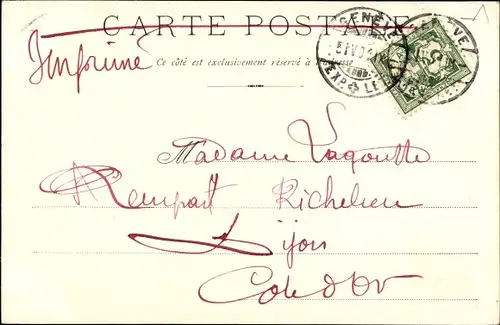 CARTE POSTALE
Imprimé
Ce côté est exclusivement réservé à l'adresse
GENÈVE
EXP. LET
Madame Lagoutte
Rempart Richelieu
Dijon
Côte d'Or